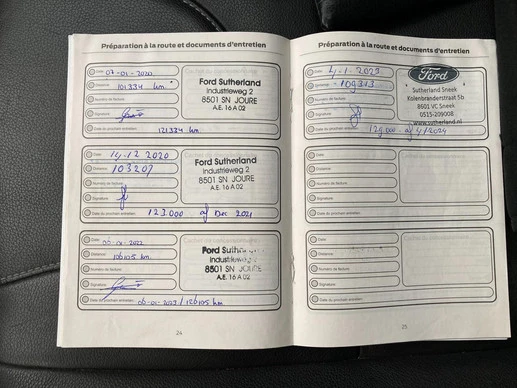 Préparation à la route et documents d'entretien
Date: 07-01-2020
Distance: 101334 km
Numéro de facture:
Signature:
Date du prochain entretien: 121334 km
Ford Sutherland
Industrieweg 2
8501 SN JOURE
A.E. 16 A 02
Date: 14-12 2020
Distance: 103207
Numéro de facture:
Signature:
Date du prochain entretien: 123.000 of Dec 2021
Ford Sutherland
Industrieweg 2
8501 SN JOURE
A.E. 16 A 02
Date: 06-01-2022
Distance: 106105 km
Numéro de facture:
Signature:
Date du prochain entretien: 06-01-2023 / 126105 km
Ford
8501 SN JOURE
A.E. 16 A 02
24
Préparation à la route et documents d'entretien
Date: 4-1-2023
Distance: 109313
Numéro de facture:
Signature:
Date du prochain entretien: 129.000 of 4/2024
Ford
Sutherland Sneek
Kolenbranderstraat 5b
8601 VC Sneek
0515-209008
www.sutherland.nl
Date:
Distance:
Numéro de facture:
Signature:
Date du prochain entretien:
Date:
Distance:
Numéro de facture:
Signature:
Date du prochain entretien:
25